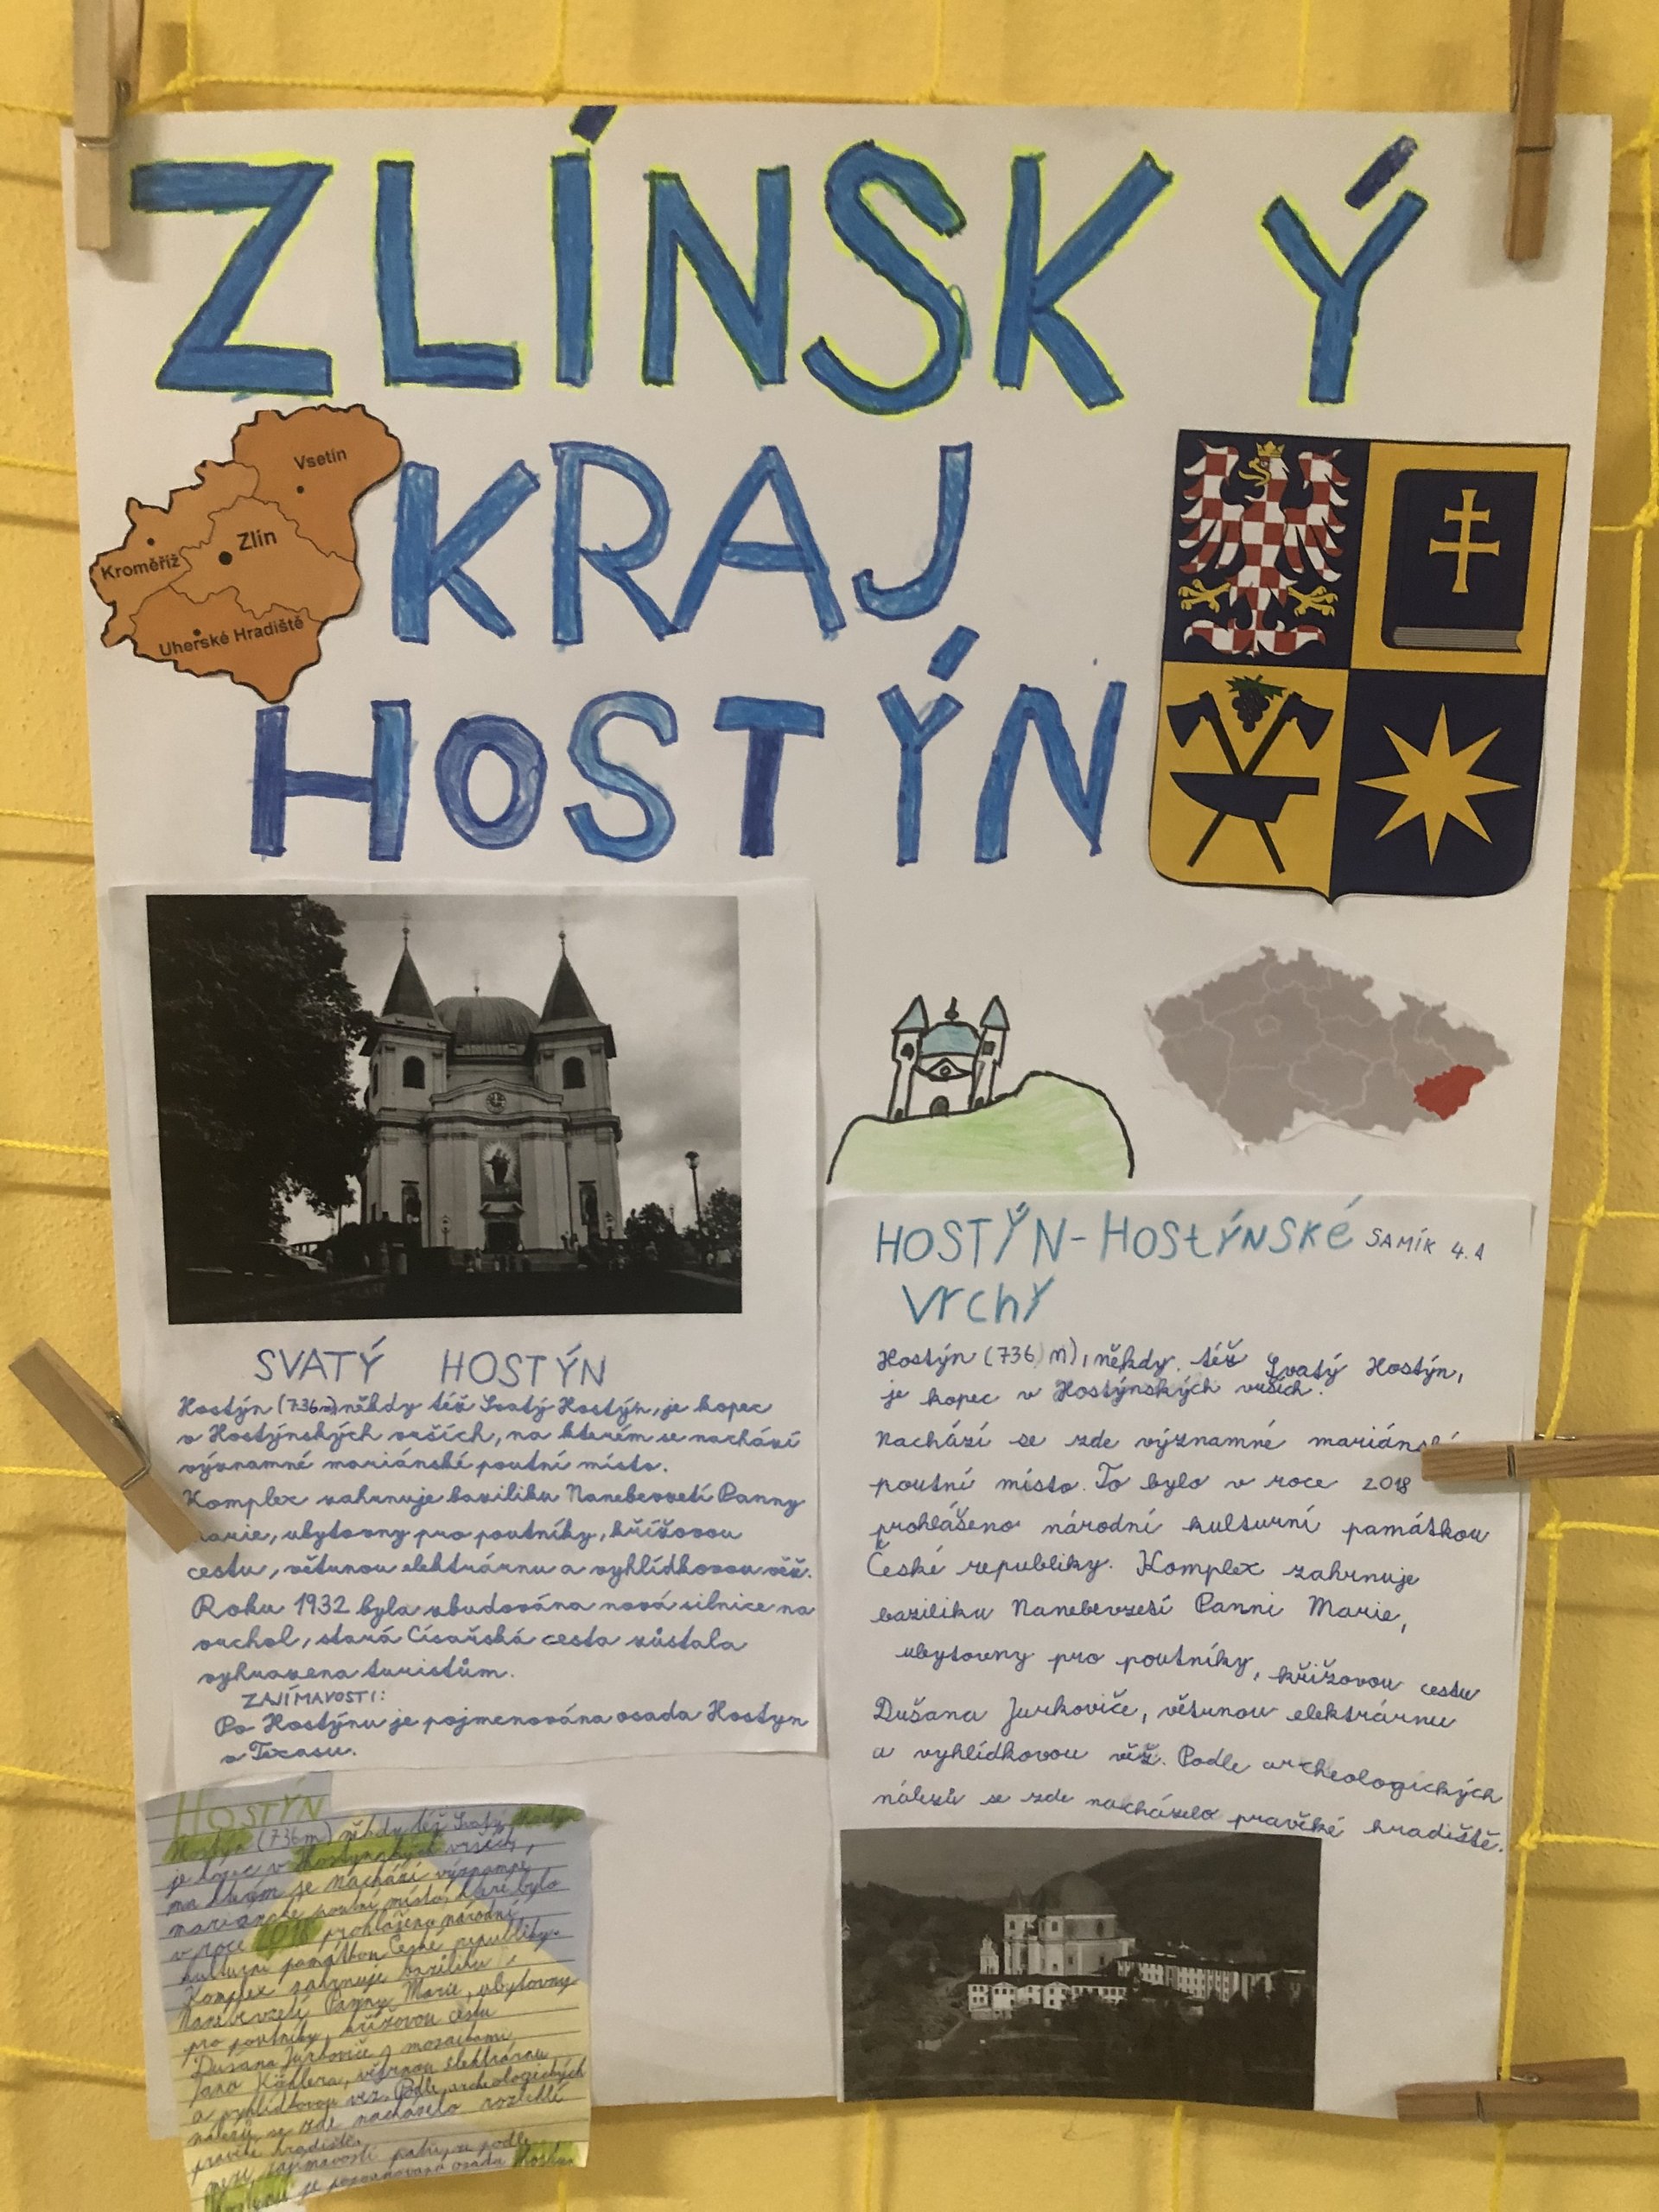 ZLÍNSKÝ
KRAJ
HOSTÝN
Vsetín
Zlín
Kroměříž
Uherské Hradiště
SVATÝ HOSTÝN
Hostýn (736m) někdy též Svatý Hostýn, je kopec
v Hostýnských vrších, na kterém se nachází
významné mariánské poutní místo.
Komplex zahrnuje baziliku Nanebevzetí Panny
arie, ubytovny pro poutníky, křížovou
cestu, větrnou elektrárnu a vyhlídkovou věž.
Roku 1932 byla vbudována nová silnice na
vrchol, stará Císařská cesta zůstala
vyhrazena turistům.
ZAJÍMAVOSTI:
Po Hostýnu je pojmenována osada Hostyn
v Texasu.
HOSTÝN-HOStÝNSKé SAMÍK 4.A
VrchY
Hostýn (736) m), někdy též Svatý Hostýn,
je kopec v Hostýnských vrších.
Nachází se zde významné mariánské
poutní místo. To bylo v roce 2018
prohlášeno národní kulturní památkou
České republiky. Komplex zahrnuje
baziliku Nanebevzesí Panni Marie,
ubytovny pro poutníky, křížovou cestu
Dušana Jurkoviče, větrnou elektrárnu
a vyhlídkovou věž. Podle archeologických
nálezů se zde nacházelo pravěké hradiště.
HOSTÝN
Hostýn (736m) někdy též Svatý Hostýn
je kopec v Hostýnských vrších,
na se nachází významné
mariánské poutní místo, které bylo
v roce 2018 prohlášeno národní
kulturní památkou České republiky.
Komplex zahrnuje baziliku
Nanebevzetí Panny Marie, ubytovny
pro poutníky, křížovou cestu
Dušana Jurkoviče s mozaikami
Jano Köhlera, větrnou elektrárnu
a vyhlídkovou věž. Podle archeologických
nálezů se zde nacházelo rozlehlé
pravěké hradiště.
mezi zajímavosti patří, že podle
je pojmenovaná osada Hostyn